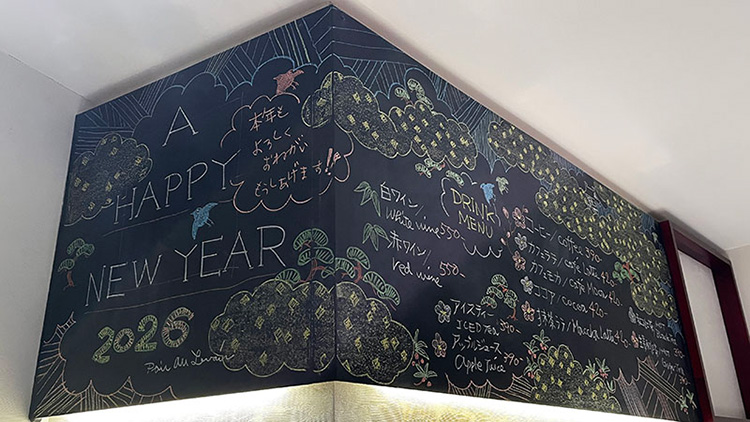 A
HAPPY
NEW YEAR
2026
本年も
よろしく
おねがい
どっしあげます!!
DRINK
MENU
白ワイン/
White wine 550-
赤ワイン/ 550-
red wine
アイスティー
ICED Tea 390-
アップルジュース 390-
Apple Juice
コーヒー/coffee 390
カフェラテ/cafe Latte 420
カフェモカ/cafe Mocha 420
ココア/cocoa 420
抹茶ラテ/Maccha Latte